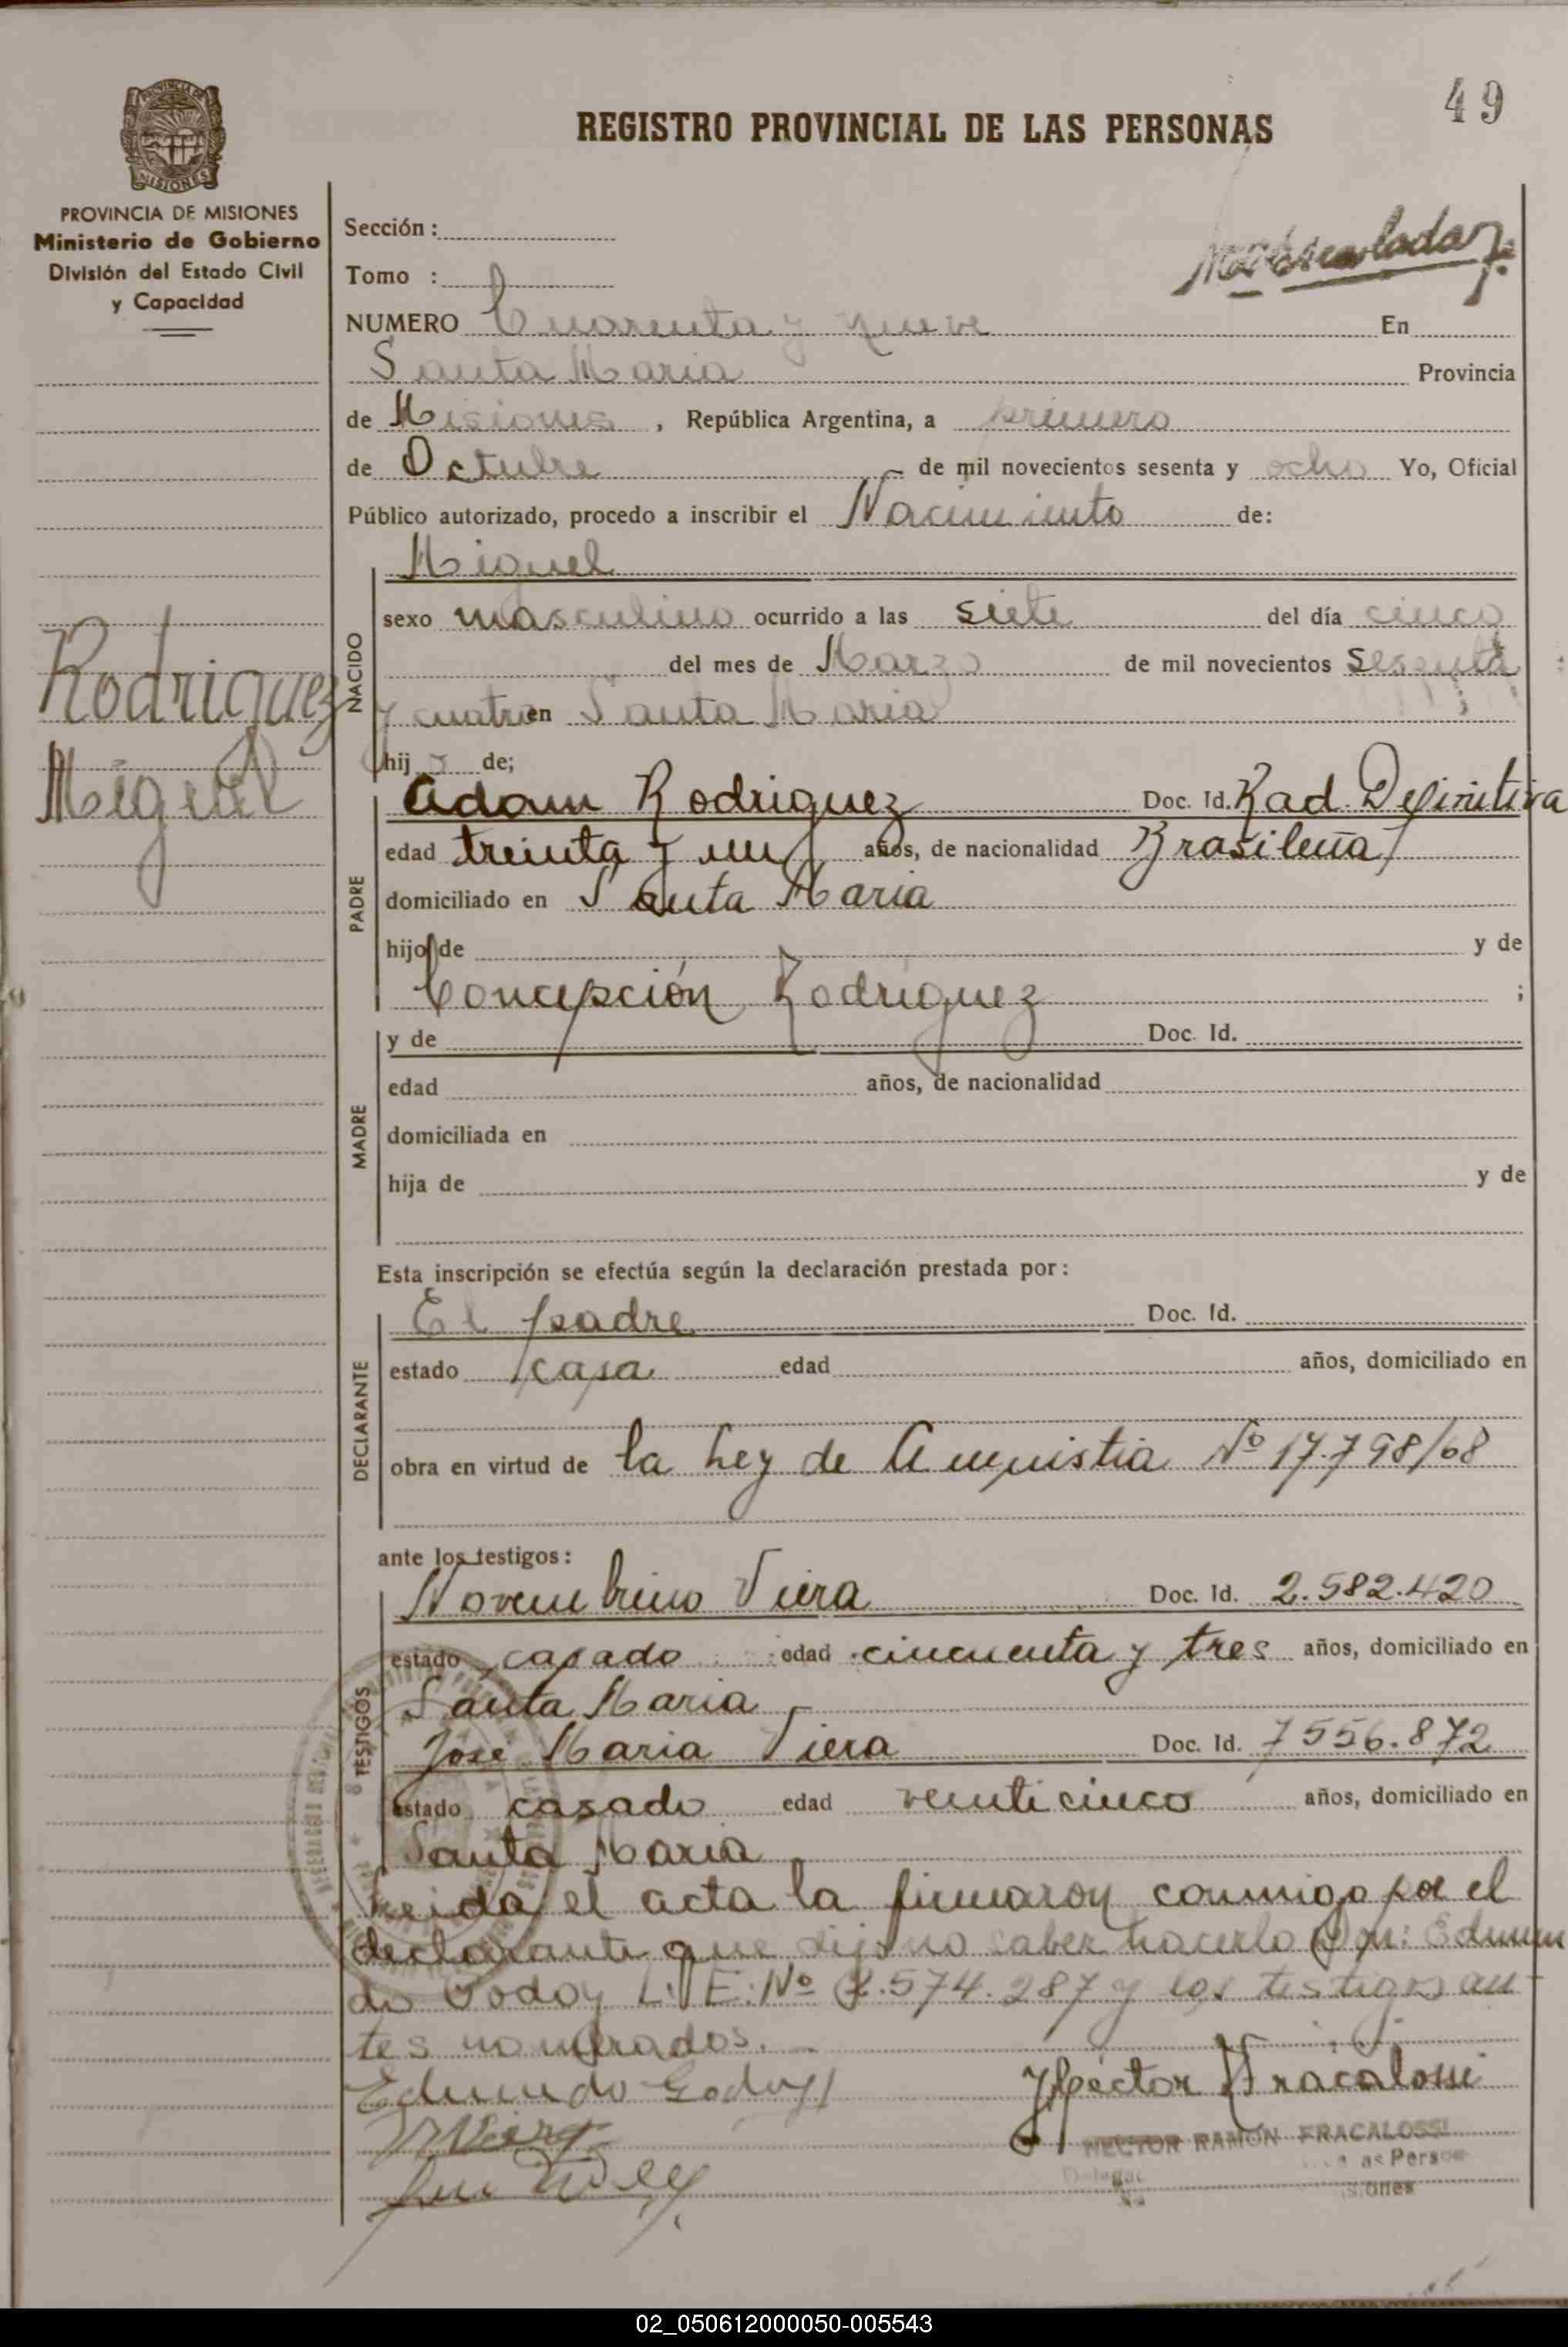 49
REGISTRO PROVINCIAL DE LAS PERSONAS
PROVINCIA DE
MISIONES
PROVINCIA DE MISIONES
Ministerio de Gobierno
División del Estado Civil
y Capacidad
Rodriguez
Miguel
Sección :
Tomo :
NUMERO Cuarenta y nueve En
Santa Maria Provincia
de Misiones , República Argentina, a primero
de Octubre de mil novecientos sesenta y ocho Yo, Oficial
Público autorizado, procedo a inscribir el Nacimiento de:
NACIDO
Miguel
sexo masculino ocurrido a las siete del día cinco
del mes de Marzo de mil novecientos sesenta
y cuatro en Santa Maria ;
hij o de;
PADRE
Adam Rodriguez Doc. Id. Rad. Definitiva
edad treinta y un años, de nacionalidad Brasileña
domiciliado en Santa Maria
hijo de y de
Concepción Rodríguez ;
MADRE
y de Doc. Id.
edad años, de nacionalidad
domiciliada en
hija de y de
Esta inscripción se efectúa según la declaración prestada por :
DECLARANTE
El padre Doc. Id.
estado casa edad años, domiciliado en
obra en virtud de la Ley de Amnistia Nº 17.798/68
ante los testigos :
TESTIGOS
Novembrino Viera Doc. Id. 2.582.420
estado casado edad cincuenta y tres años, domiciliado en
Santa Maria
Jose Maria Viera Doc. Id. 7556.872
estado casado edad veinticinco años, domiciliado en
Santa Maria
Leida el acta la firmaron conmigo por el
declarante que dijo no saber hacerlo Don: Edmun
do Godoy L. E. Nº 2.574.287 y los testigos an-
tes nombrados.
Edmundo Godoy
Hector Fracalossi
HECTOR RAMON FRACALOSSI
02_050612000050-005543